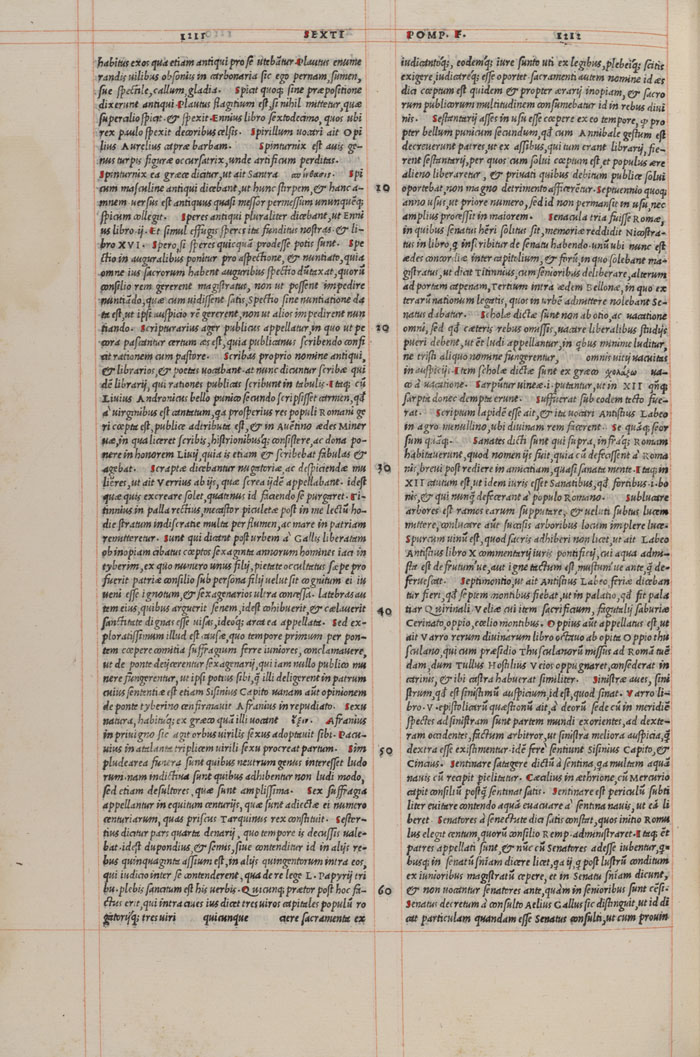 IIII SEXTI
POMP. F. IIII
habitus exos qua etiam antiqui pro se utebãtur. Plautus enume
randis uilibus obsoniis in carbonaria sic ego pernam, sumen,
sue spectile, callum, gladia. Spicit quoq; sine præpositione
dixerunt antiqui. Plautus flagitium est, si nihil mittetur, quæ
supercilio spicit. & spexit. Ennius libro sextodecimo, quos ubi
rex paulo spexit decoribus celsis. Spirillum uocari ait Opi
lius Aurelius capræ barbam. Spinturnix est auis ge-
nus turpis figuræ occursatrix, unde artificum perditas.
Spinturnix ea græce dicitur, ut ait Santra Spi
cum masculine antiqui dicebant, ut hunc stirpem, & hanc a-
mnem uersus est antiquus quasi messor permessum unumquẽq;
spicum collegit. Speres antiqui pluraliter dicebant, ut Enni
us libro.ij. Et simul effugit speres ita funditus nostras. & li-
bro XVI. Spero, si speres quicquã prodesse potis sunt. Spe
ctio in auguralibus ponitur pro aspectione, & nuntiato, quia
omne ius sacrorum habent auguribus spectio dũtaxat, quorũ
consilio rem gererent magistratus, non ut possent impedire
nuntiãdo, quæ cum uidissent satis, spectio sine nuntiatione da
ta est, ut ipsi auspicio rẽ gererent, non ut alios impedirent nun
tiando. Scripturarius ager publicus appellatur, in quo ut pe
cora pascantur certum æs est, quia publicanus scribendo confi
cit rationem cum pastore. Scribas proprio nomine antiqui,
& librarios, & poetas uocabant. at nunc dicuntur scribæ qui
dẽ librarij, qui rationes publicas scribunt in tabulis. Itaq; cũ
Liuius Andronicus bello punico secundo scripsisset carmen, qđ
a uirginibus est cantatum, qa prosperius res populi Romani ge
ri cœpta est, publice adtributa est, & in Auẽtino ædes Miner
uæ, in qua liceret scribis, histrionibusq; consistere, ac dona po-
nere in honorem Liuij, quia is etiam & scribebat fabulas &
agebat. Scraptæ dicebantur nugatoriæ, ac despiciendæ mu
lieres, ut ait Verrius ab ijs, quæ screa ijdẽ appellabant. idest
quæ quis excreare solet, quatinus id faciendo se purgaret. Ti-
tinnius in palla rectius, mecastor piculetæ post in me lectũ ho-
die stratum indiscretiæ multæ per flumen, ac mare in patriam
remitteretur. Sunt qui dicant post urbem à Gallis liberatam
ob inopiam cibatus cœptos sexaginta annorum homines iaci in
tyberim, ex quo numero unus filij, pietate occultatus sæpe pro
fuerit patriæ consilio sub persona filij uelut sit cognitum ei iu
ueni esse ignotum, & sexagenarios ultra concessa. latebras au
tem eius, quibus arguerit senem, idest cohibuerit, & cælauerit
sanctitate dignas esse uisas, ideoq; arcæ ea appellata. Sed ex-
ploratissimum illud est causæ, quo tempore primum per pon-
tem cœpere comitia suffragium ferre iuniores, conclamauere,
ut de ponte deijcerentur sexagenarij, qui iam nullo publico mu
nere fungerentur, ut ipsi potius sibi, q̃ illi deligerent in patrum
cuius sententiæ est etiam Sisinius Capito uanam aũt opinionem
de ponte tyberino confirmauit Afranius in repudiato. Sexu
natura, habituq; ex græco quã illi uocant ἕξις. Afranius
in priuigno sic agit orbus uirilis sexus adoptauit sibi. Pacu-
uius in atalanta triplicem uirili sexu procreat partum. Sim
pludearea funera sunt quibus neutrum genus interesset ludo
rum. nam indictiua sunt quibus adhibentur non ludi modo,
sed etiam desultores, quæ sunt amplissima. Sex suffragia
appellantur in equitum centurijs, quæ sunt adiectæ ei numero
centuriarum, quas priscus Tarquinus rex constituit. Sester-
tius dictur pars quarta denarij, quo tempore is decussis uale-
bat. idest dupondius, & semis, siue contenditur id in alijs re-
bus quinquaginta assium est, in alijs quingentorum intra eos,
qui iudicio inter se contenderent, qua de re lege L. Papyrij tri
bu. plebis sanctum est his uerbis. Quicunq; prætor post hoc fa-
ctus erit, qui intra ciues ius dicet tres uiros capitales populũ ro
gatoriq; tres uiri quicunque acre sacramenta ex
iudicatotq;, eodemq; iure sunto uti ex legibus, plebeiq; scitis
exigere, iudicareq; esse oportet. sacramenti autem nomine id æs
dici cœptum est quidem & propter ærarij inopiam, & sacro
rum publicorum multitudinem consumebatur id in rebus diui
nis. Sestantarij asses in usu esse cœpere ex eo tempore, q̃ pro
pter bellum punicum secundum, qđ cum Annibale gestum est
decreuerunt patres, ut ex assibus, qui tum erant librarij, fie-
rent sestantarij, per quos cum solui cœptum est, et populus ære
10 alieno liberaretur, & priuati quibus debitum publice solui
oportebat, non magno detrimento afficerẽtur. Septuennio quoq;
anno usus, ut priore numero, sed id non permansit in usu, nec
amplius processit in maiorem. Senacula tria fuisse Romæ,
in quibus Senatus hẽri solitus sit, memoriæ reddidit Nicostra-
tus in libro, q̃ inscribitur de senatu habendo. unũ ubi nunc est
ædes concordiæ inter capitolium, & forũ, in quo solebant ma-
gistratus, ut dicit Titinnius, cum senioribus deliberare, alterum
ad portam capenam, Tertium intra ædem Bellonæ, in quo ex
terarũ nationum legatis, quos in urbẽ admittere nolebant Se-
natus dabatur. Scholæ dictæ sunt non ab otio, ac uacatione
20 omni, sed qđ cæteris rebus omissis, uacare liberalibus studijs
pueri debent, ut ẽt ludi appellantur, in qbus minime luditur,
ne tristi aliquo nomine fungerentur, omnis uirij uacuitas
in auspicijs. Item scholæ dictæ sunt ex græco σχολάζω ua-
co à uacatione. Sarpũtur uineæ .i. putantur, ut in XII quẽq;
sarpta donec dempta erunt. Sufficerat sub codem tecto fue-
rat. Scriptum lapidẽ esse ait, & ita uocari Antistius Labeo
in agro menullino, ubi diuinam rem facerent. Se quãq; seor
sum quãq;. Sanates dicti sunt qui supra, infraq; Romam
habitauerunt, quod nomen ijs fuit, quia cũ defecissent à Roma
30 nis, breui post rediere in amicitiam, quasi sanata mente. Itaq; in
XII cautum est, ut idem iuris esset Sanatibus, qđ foribus .i. bo
nis, & qui nunq̃ defecerant à populo Romano. Sublucare
arbores est ramos earum supputare, & ueluti subtus lucem
mittere, conlucare aũt succisis arboribus locum implere luce.
Spurcum uinũ est, quod sacris adhiberi non licet, ut ait Labeo
Antistius libro X commentarij iuris pontificij, cui aqua admi-
sta est defrutum'ue, aut igne tactum est, mustum'ue ante, q̃ de-
feruescat. Septimontio, ut ait Antistius Labeo feriæ diceban
tur fieri, qđ septem montibus fiebat, ut in palatio, qđ fit pala
40 tiar Quirinali Veliæ cui item sacrificium, fagutali saburiæ
Cerinato, oppio, cœlio montibus. Oppius aũt appellatus est, ut
ait Varro rerum diuinarum libro octauo ab opite Oppio thu
sculano, qui cum præsidio Thusculanorũ missus ad Romã tuẽ
dam, dum Tullus Hostilius Veios oppugnaret, consederat in
carinis, & ibi castra habuerat similiter. Sinistræ aues, sini
strum, qđ est sinistimũ auspicium, id est, quod sinat. Varro li-
bro .V. epistolicarũ quæstionũ ait, à deorũ sede cũ in meridiẽ
spectes ad sinistram sunt partem mundi exorientes, ad dexte-
ram occidentes, factum arbitror, ut sinistra meliora auspicia, q̃
50 dextra esse existimentur. idẽ ferẽ sentiunt Sisinius Capito, &
Cincius. Sentinare satagere dictũ à sentina, qa multam aquã
nauis cũ recipit piclitetur. Cæcilius in æthrione, cũ Mercurio
capit consiliũ postq̃ sentinat satis. Sentinare est periculũ subti
liter euitare contendo aquã euacuare à sentina nauis, ut eã li
beret. Senatores à senectute dici satis constat, quos initio Romu
lus elegit centum, quorũ consilio Remp. administraret. Itaq; ẽt
patres appellati sunt, & nũc cũ Senatores adesse iubentur, q̃-
busq; in senatũ sñiam dicere licet, qa ij, q̃ post lustrũ conditum
ex iunioribus magistratũ cepere, et in Senatu sñiam dicunt,
60 & non uocantur senatores ante, quàm in senioribus sunt cẽsi.
Senatus decretum à consulto Aelius Gallus sic distinguit, ut id di
cat particulam quandam esse Senatus consulti, ut cum prouin